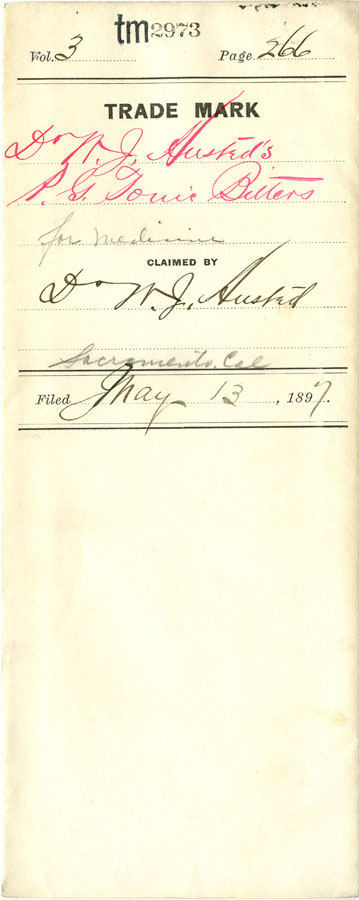 tm 2973
Vol. 3 Page 266
TRADE MARK
Dr W. J. Husted's
P. G. Tonic Bitters
for medicine
CLAIMED BY
Dr W. J. Husted
Sacramento, Cal
Filed May 13, 1897.